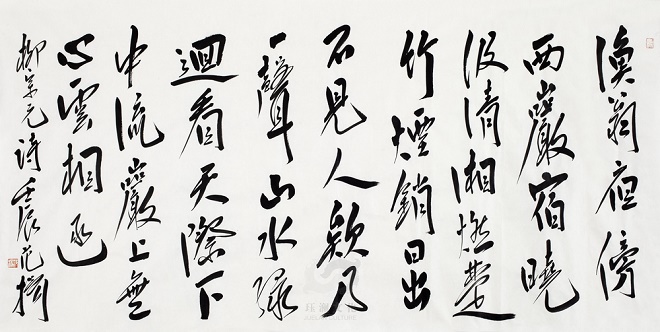 漁翁夜傍
西巖宿曉
汲清湘燃楚
竹煙銷日出
不見人欸乃
一聲山水綠
迴看天際下
中流巖上無
心雲相逐
柳宗元詩 壬辰 范